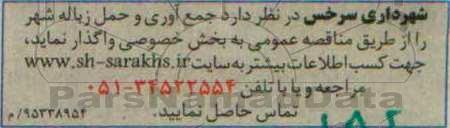 شهرداری سرخس در نظر دارد جمع آوری و حمل زباله شهر
را از طریق مناقصه عمومی به بخش خصوصی واگذار نماید،
جهت کسب اطلاعات بیشتر به سایت www.sh-sarakhs.ir
مراجعه و یا با تلفن ۳۴۵۲۲۵۵۴-۰۵۱
تماس حاصل نمایید. ۹۵۳۳۸۹۵۴/م
ParsNamadData